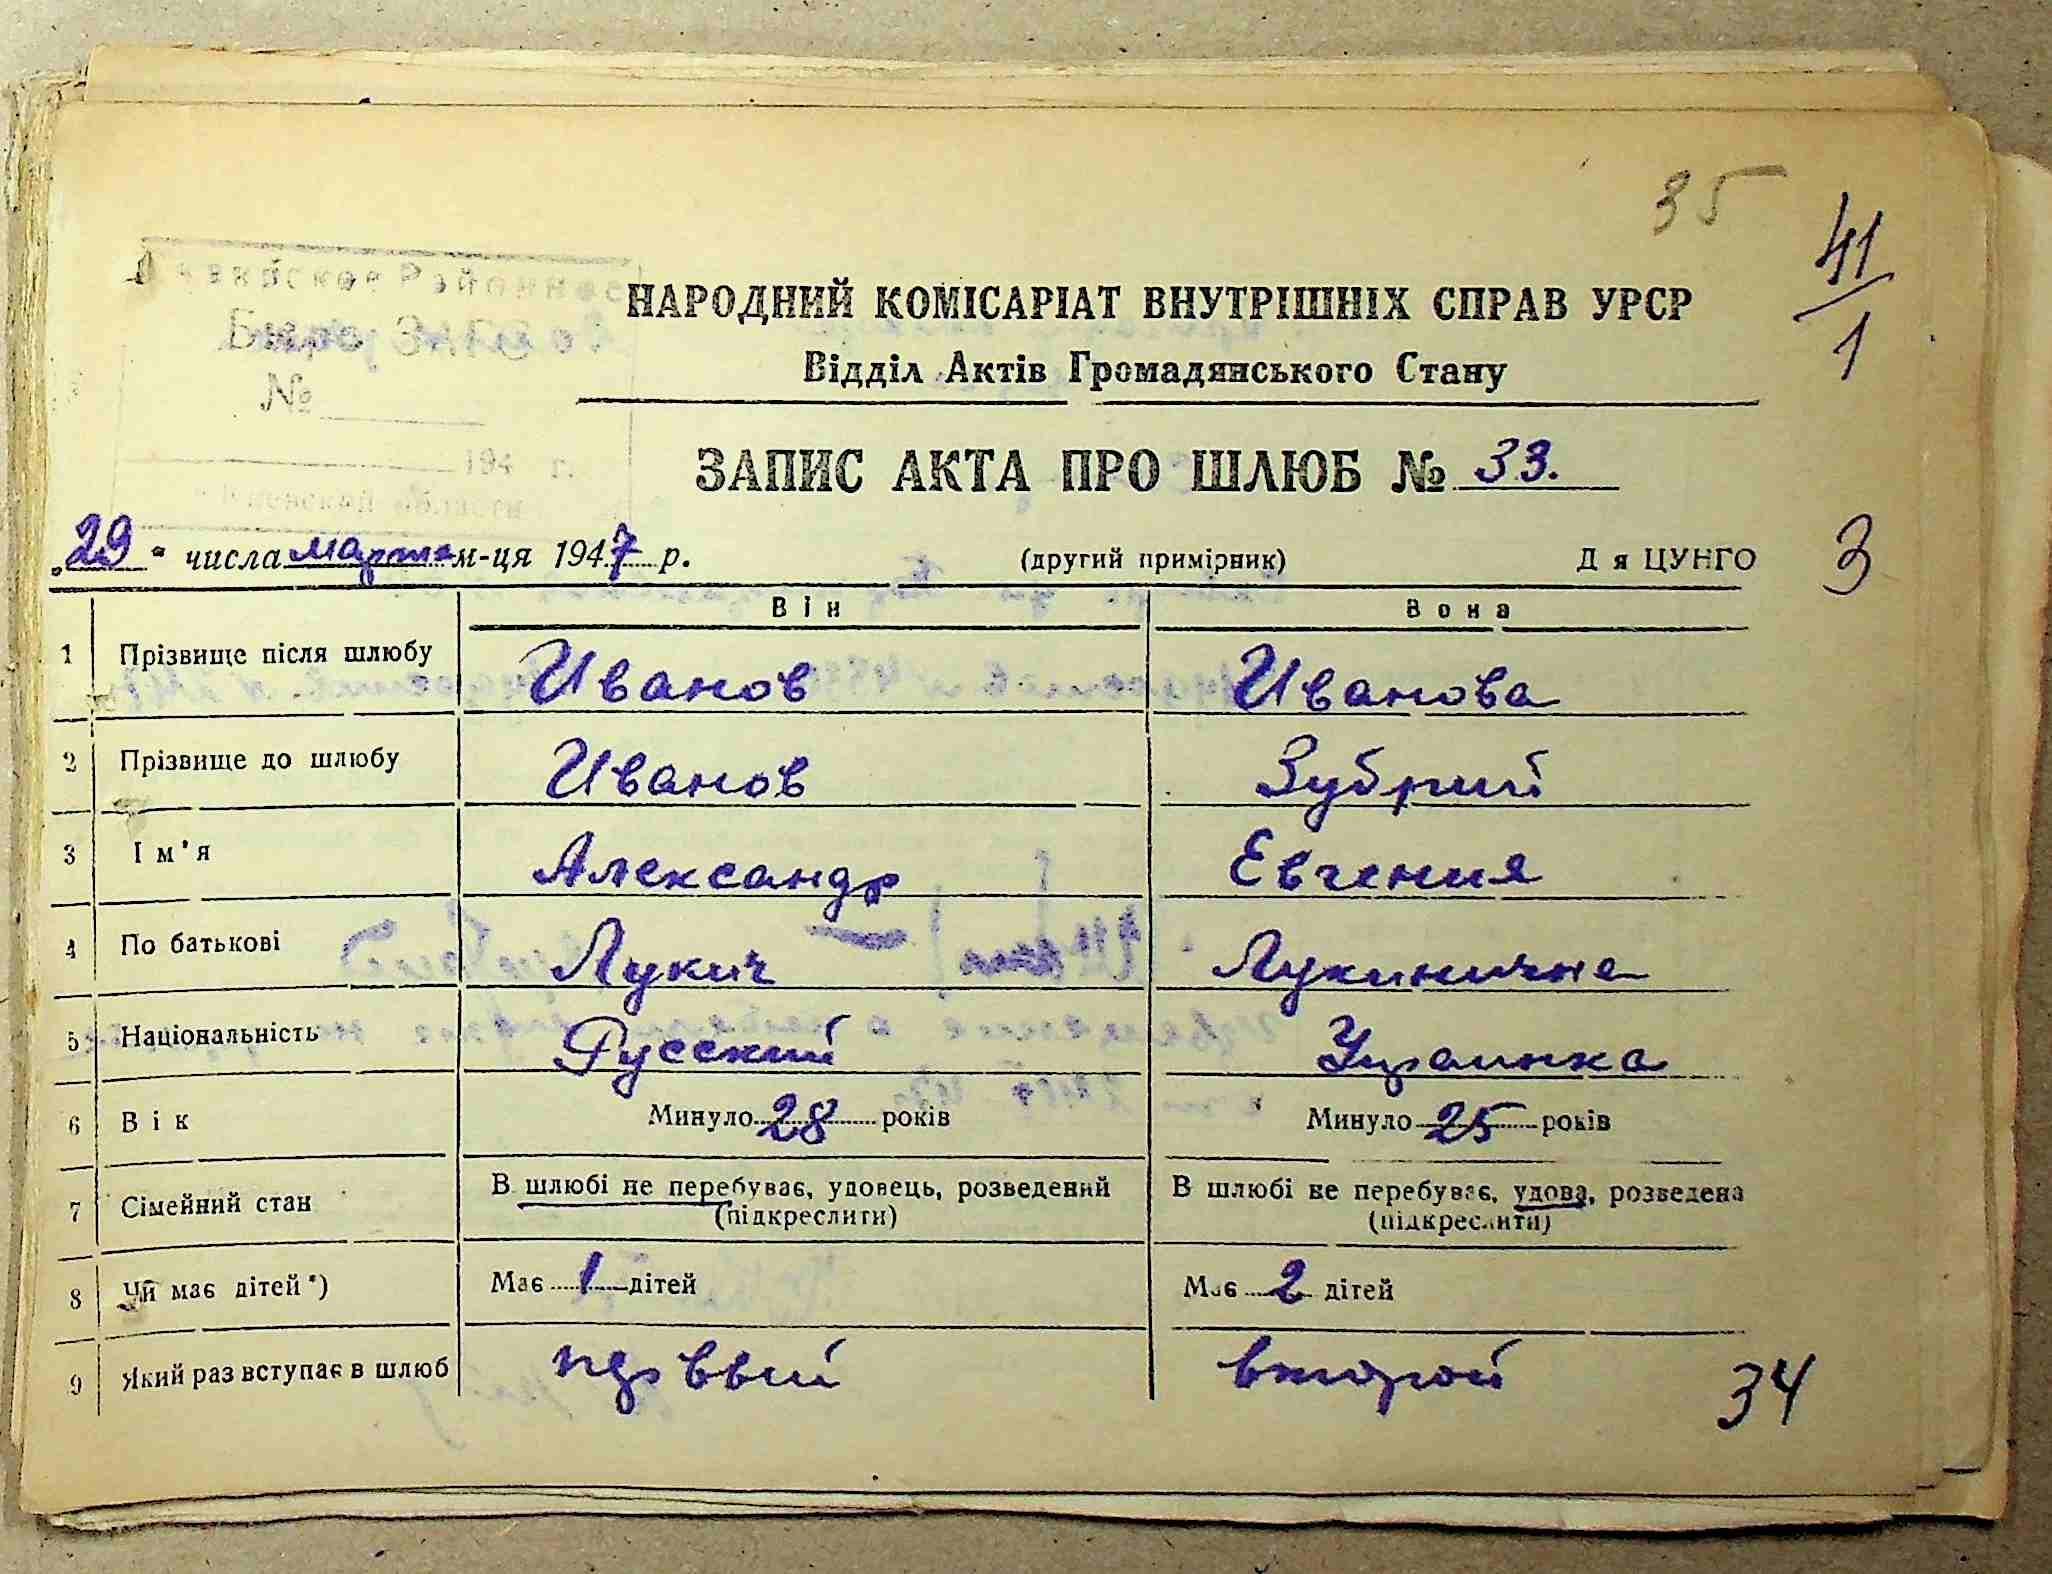 35
41/1
НАРОДНИЙ КОМІСАРІАТ ВНУТРІШНІХ СПРАВ УРСР
Бюро
№
Відділ Актів Громадянського Стану
194 г.
ЗАПИС АКТА ПРО ШЛЮБ № 33.
„29" числа марта м-ця 1947 р. (другий примірник) Д я ЦУНГО 3
Він Вона
1 Прізвище після шлюбу Иванов Иванова
2 Прізвище до шлюбу Иванов Зубрий
3 Ім'я Александр Евгения
4 По батькові Лукич Лукинична
5 Національність Русский Украинка
6 Вік Минуло 28 років Минуло 25 років
7 Сімейний стан В шлюбі не перебуває, удовець, розведений В шлюбі не перебуває, удова, розведена
(підкреслити) (підкреслити)
8 Чи має дітей*) Має 1 дітей Має 2 дітей
9 Який раз вступає в шлюб первый второй
34